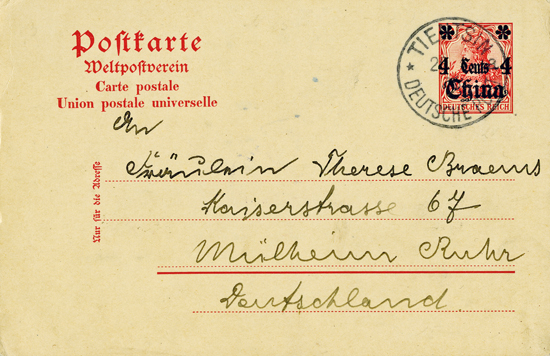 Postkarte
Weltpostverein
Carte postale
Union postale universelle
4 Cents 4
China
DEUTSCHES REICH
TIENTSIN
DEUTSCHE
An
Fräulein Therese Braems
Kaiserstrasse 67
Mülheim Ruhr
Deutschland.
Nur für die Adresse